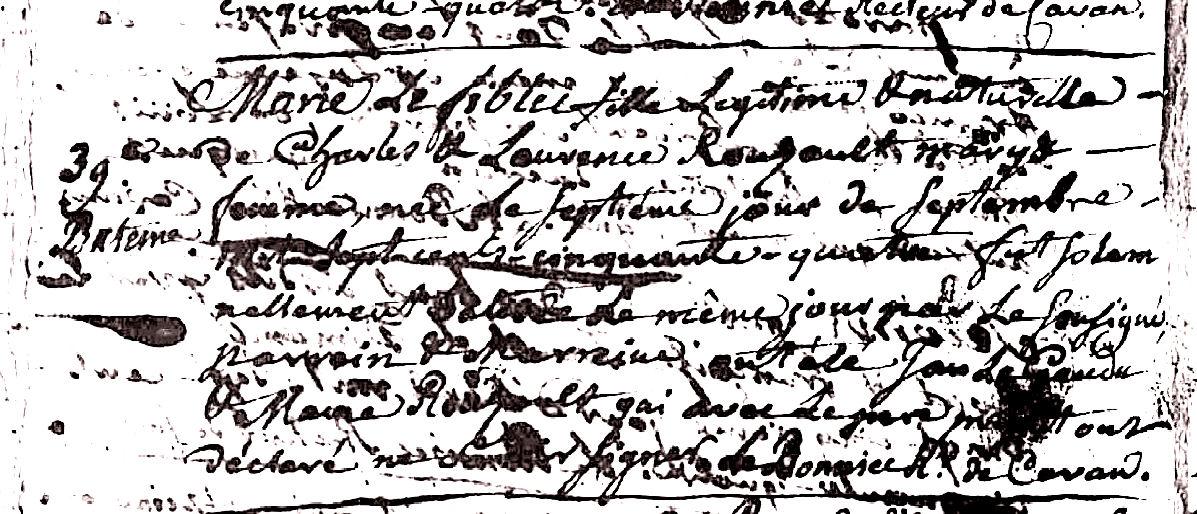 cinquante quatre. Recteur de Cavan.
Marie Le fiblec fille Legitime & naturelle
39
de Charles & Laurence Rougoult maryés
Batême
femme, née le septiême jour de septembre
Mil sept cents cinquante-quattre fut solem
nellement batisée le même jour par le sousigné,
parrain & Marraine ont été Jan Le
& Marie Rougoult qui avec le pere ont
déclaré ne sçavoir signer, Rr. de Cavan.